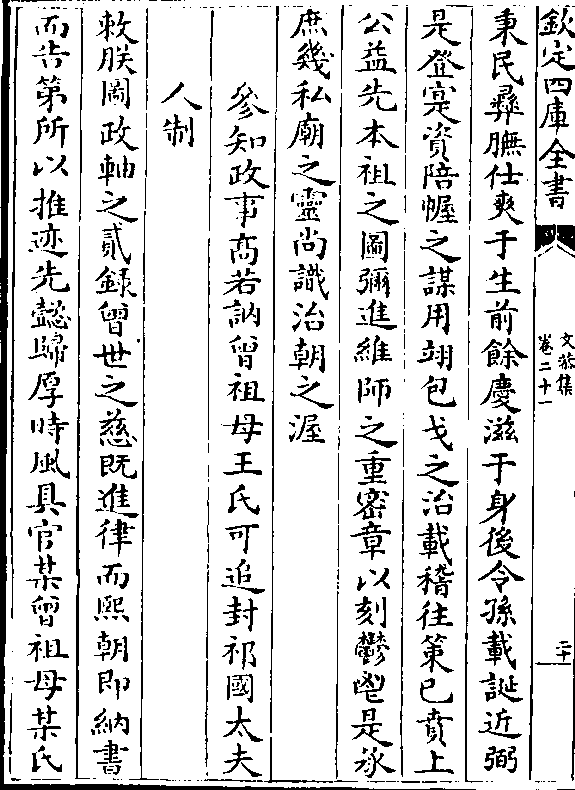 欽定四庫全書
文恭集
卷二十一
二十
秉民彝膴仕爽于生前餘慶滋于身後令孫載誕近弼
是登寔資陪幄之謀用翊包戈之治載稽往策已賁上
公益先本祖之圖彌進維師之重密章以刻鬱鬯是承
庶幾私廟之靈尚識治朝之渥
參知政事高若訥曾祖母王氏可追封祁國太夫
人制
敕朕圖政軸之貳録曾世之慈既進律而熙朝即納書
而告第所以推迹先懿歸厚時風具官某曾祖母某氏